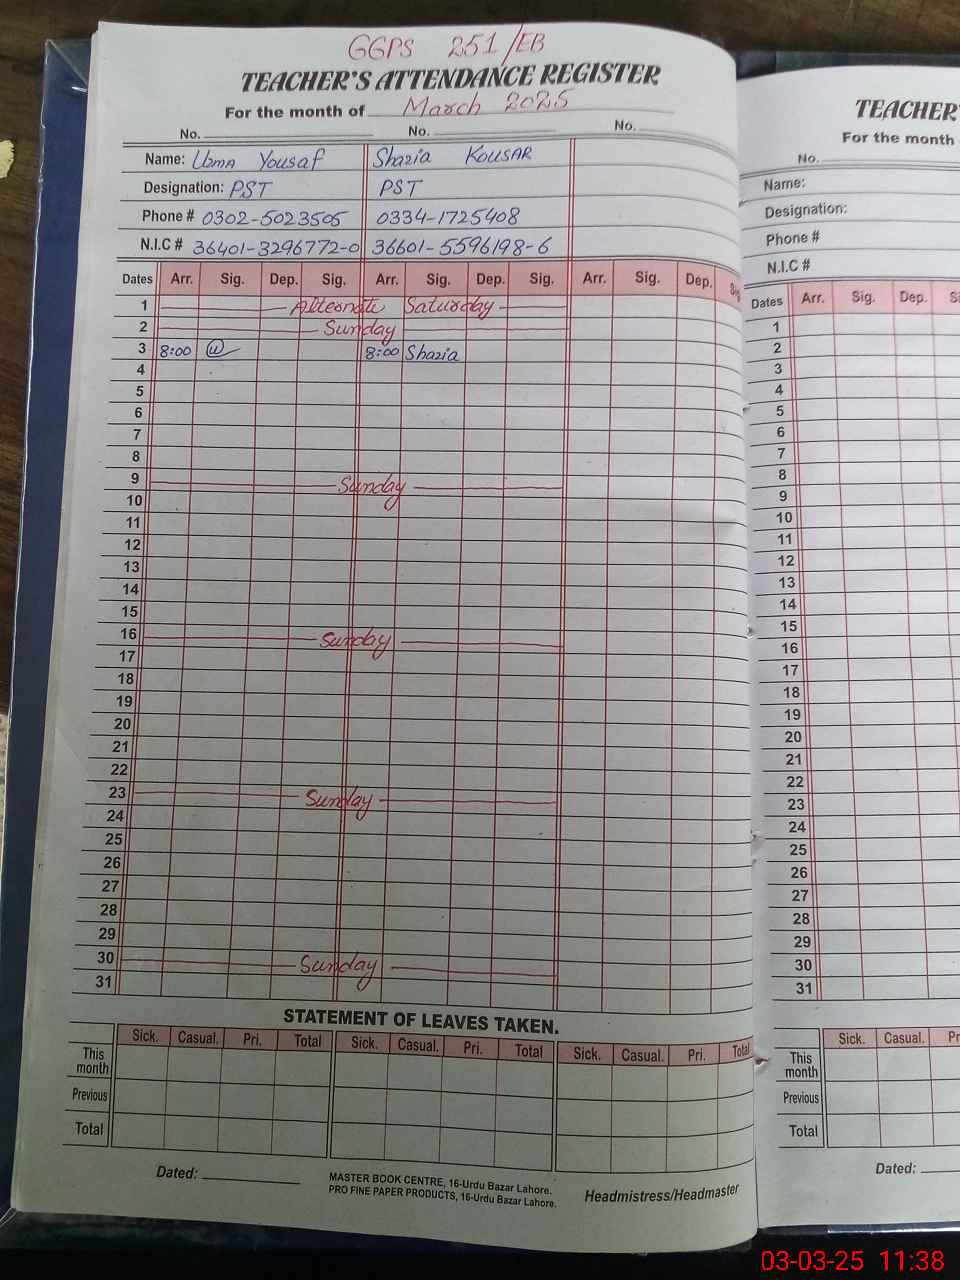 GGPS 251/EB
TEACHER'S ATTENDANCE REGISTER
For the month of March 2025
No. No. No.
Name: Uzma Yousaf Shazia KOUSAR
Designation: PST PST
Phone # 0302-5023505 0334-1725408
N.I.C # 36401-3296772-0 36601-5596198-6
Dates Arr. Sig. Dep. Sig. Arr. Sig. Dep. Sig. Arr. Sig. Dep. Sig
1 Alternate Saturday
2 Sunday
3 8:00 8:00 Shazia
4
5
6
7
8
9 Sunday
10
11
12
13
14
15
16 Sunday
17
18
19
20
21
22
23 Sunday
24
25
26
27
28
29
30 Sunday
31
STATEMENT OF LEAVES TAKEN.
Sick. Casual. Pri. Total Sick. Casual. Pri. Total Sick. Casual. Pri. Total
This month
Previous
Total
Dated:
MASTER BOOK CENTRE, 16-Urdu Bazar Lahore.
PRO FINE PAPER PRODUCTS, 16-Urdu Bazar Lahore.
Headmistress/Headmaster
TEACHER'
For the month
No.
Name:
Designation:
Phone #
N.I.C #
Dates Arr. Sig. Dep. S
1
2
3
4
5
6
7
8
9
10
11
12
13
14
15
16
17
18
19
20
21
22
23
24
25
26
27
28
29
30
31
Sick. Casual. Pr
This month
Previous
Total
Dated:
03-03-25 11:38